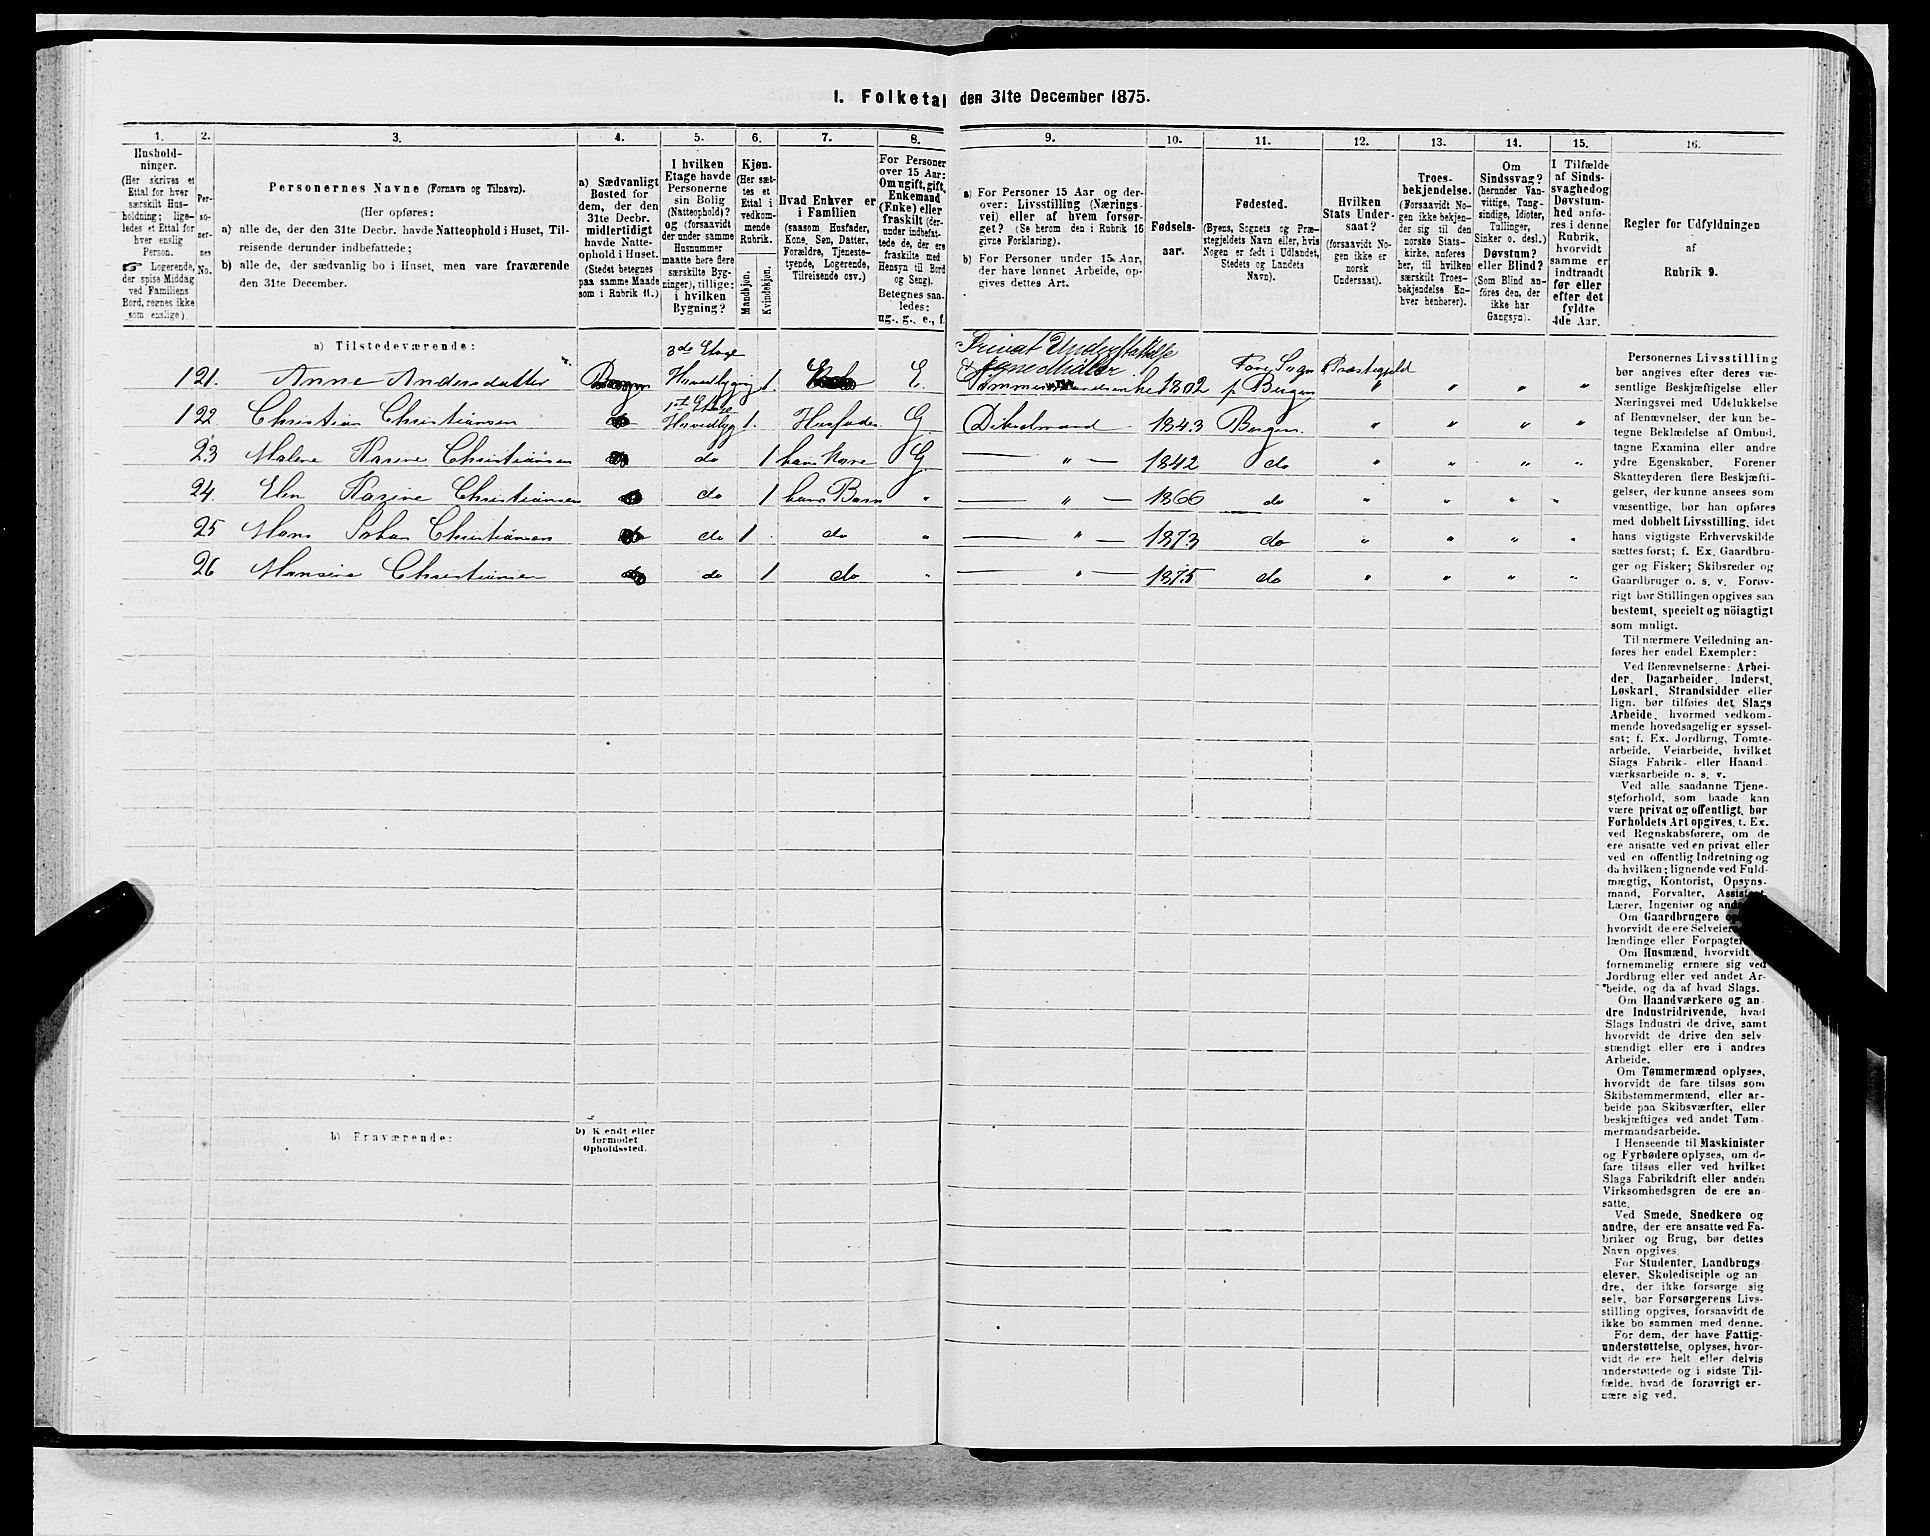 I. Folketal den 31te December 1875.
1.
Hushold-
ninger.
(Her skrives et
Ettal for hver
særskilt Hus-
holdning; lige-
ledes et Ettal for
hver enslig
Person.
☞ Logerende,
der spise Middag
ved Familiens
Bord, regnes ikke
som enslige).
2.
Per-
so-
ner-
nes
No.
3.
Personernes Navne (Fornavn og Tilnavn).
(Her opføres:
a) alle de, der den 31te Decbr. havde Natteophold i Huset, Til-
reisende derunder indbefattede;
b) alle de, der sædvanlig bo i Huset, men vare fraværende
den 31te December.
4.
a) Sædvanligt
Bosted for
dem, der den
31te Decbr.
midlertidigt
havde Natte-
ophold i Huset.
(Stedet betegnes
paa samme Maade
som i Rubrik 11.)
5.
I hvilken
Etage havde
Personerne
sin Bolig
(Natteophold)?
og (forsaavidt
der under samme
Husnummer
maatte høre flere
særskilte Byg-
ninger), tillige:
i hvilken
Bygning?
6.
Kjøn.
(Her sæt-
tes et
Ettal i
vedkom-
mende
Rubrik.
Mandkjøn.
Kvindekjøn.
7.
Hvad Enhver er
i Familien
(saasom Husfader,
Kone, Søn, Datter,
Forældre, Tjeneste-
tyende, Logerende,
Tilreisende osv.)
8.
For Personer
over 15 Aar:
Om ugift, gift,
Enkemand
(Enke) eller
fraskilt (der-
under indbefat-
tede de, der ere
fraskilte med
Hensyn til Bord
og Seng).
Betegnes saa-
ledes:
ug., g., e., f.
9.
a) For Personer 15 Aar og der-
over: Livsstilling (Nærings-
vei) eller af hvem forsør-
get? (Se herom den i Rubrik 16
givne Forklaring).
b) For Personer under 15 Aar,
der have lønnet Arbeide, op-
gives dettes Art.
10.
Fødsels-
aar.
11.
Fødested.
(Byens, Sognets og Præ-
stegjeldets Navn eller, hvis
Nogen er født i Udlandet,
Stedets og Landets
Navn).
12.
Hvilken
Stats Under-
saat?
(forsaavidt No-
gen ikke er
norsk
Undersaat).
13.
Troes-
bekjendelse.
(Forsaavidt No-
gen ikke bekjen-
der sig til den
norske Stats-
kirke, anføres
her, til hvilken
særskilt Troes-
bekjendelse En-
hver henhører).
14.
Om
Sindssvag?
(herunder Van-
vittige, Tung-
sindige, Idioter,
Tullinger,
Sinker o. desl.)
Døvstum?
eller Blind?
(Som Blind an-
føres den, der
ikke har
Gangsyn).
15.
I Tilfælde
af Sinds-
svaghed og
Døvstum-
hed anfø-
res i denne
Rubrik,
hvorvidt
samme er
indtraadt
før eller
efter det
fyldte
4de Aar.
16.
Regler for Udfyldningen
af
Rubrik 9.
a) Tilstedeværende:
3de Etage Privat Understøttelse
Egne Midler Fane Sogn Præstegjeld
1 21. Anne Andersdatter Bergen Hovedbygnig 1 E. Tømmermandsenke 1802 p. Bergen " " " "
1ste Etage
1 22. Christian Christiansen do Hovedbyg 1. Husfader G. 1843 Bergen " " " "
23 Malene Karine Christiansen do do 1 hans Kone G. " 1842 do " " " "
24. Elen Karine Christiansen do do 1 hans Barn " " 1866 do " " " "
25 Hans Johan Christiansen do do 1 do " " 1873 do " " " "
26 Hansine Christiansen do do 1 do " " 1875 do " " " "
b) Fraværende:
b) Kendt eller
formodet
Opholdssted.
Personernes Livsstilling
bør angives efter deres væ-
sentlige Beskjæftigelse eller
Næringsvei med Udelukkelse
af Benævnelser, der kun be-
tegne Beklædelse af Ombud,
tagne Examina eller andre
ydre Egenskaber. Forener
Skatteyderen flere Beskjæfti-
gelser, der kunne ansees som
væsentlige, bør han opføres
med dobbelt Livsstilling, idet
hans vigtigste Erhvervskilde
sættes først; f. Ex. Gaardbru-
ger og Fisker; Skibsreder og
Gaardbruger o. s. v. Forøv-
rigt bør Stillingen opgives saa
bestemt, specielt og nöiagtigt
som muligt.
Til nærmere Veiledning an-
føres her endel Exempler:
Ved Benævnelserne: Arbei-
der, Dagarbeider, Inderst,
Løskarl, Strandsidder eller
lign. bør tilføies det Slags
Arbeide, hvormed vedkom-
mende hovedsagelig er syssel-
sat; f. Ex. Jordbrug, Tomte-
arbeide, Veiarbeide, hvilket
Slags Fabrik- eller Haand-
værksarbeide o. s. v.
Ved alle saadanne Tjene-
steforhold, som baade kan
være privat og offentligt, bør
Forholdets Art opgives, t. Ex.
ved Regnskabsførere, om de
ere ansatte ved en privat eller
ved en offentlig Indretning og
da hvilken; lignende ved Fuld-
mægtig, Kontorist, Opsyns-
mand, Forvalter, Assistent,
Lærer, Ingeniør og
Om Gaardbrugere
hvorvidt de ere Selveiere
lændinge eller
Om Husmænd, hvorvidt
fornemmelig ernære sig ved
Jordbrug eller ved andet Ar-
beide, og da af hvad Slags.
Om Haandværkere og an-
dre Industridrivende, hvad
Slags Industri de drive, samt
hvorvidt de drive den selv-
stændigt eller ere i andres
Arbeide.
Om Tømmermænd oplyses,
hvorvidt de fare tilsøs som
Skibstømmermænd, eller ar-
beide paa Skibsværfter, eller
beskjæftiges ved andet Tøm-
mermandsarbeide.
I Henseende til Maskinister
og Fyrbødere oplyses, om de
fare tilsøs eller ved hvilket
Slags Fabrikdrift eller anden
Virksomhedsgren de ere an-
satte.
Ved Smede, Snedkere og
andre, der ere ansatte ved Fa-
briker og Brug, bør dettes
Navn opgives.
For Studenter, Landbrugs-
elever, Skoledisciple og an-
dre, der ikke forsørge sig
selv, bør Forsørgerens Livs-
stilling opgives, forsaavidt de
ikke bo sammen med denne.
For dem, der have Fattig-
understøttelse, oplyses, hvor-
vidt de ere helt eller delvis
understøttede og i sidste Til-
fælde, hvad de forøvrigt er-
nære sig ved.